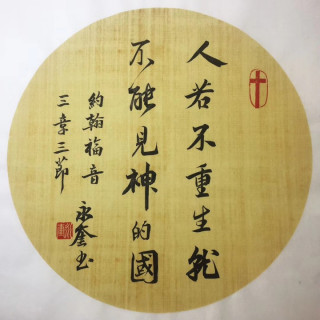 人若不重生就
不能見神的國
約翰福音
三章三節
永奎书